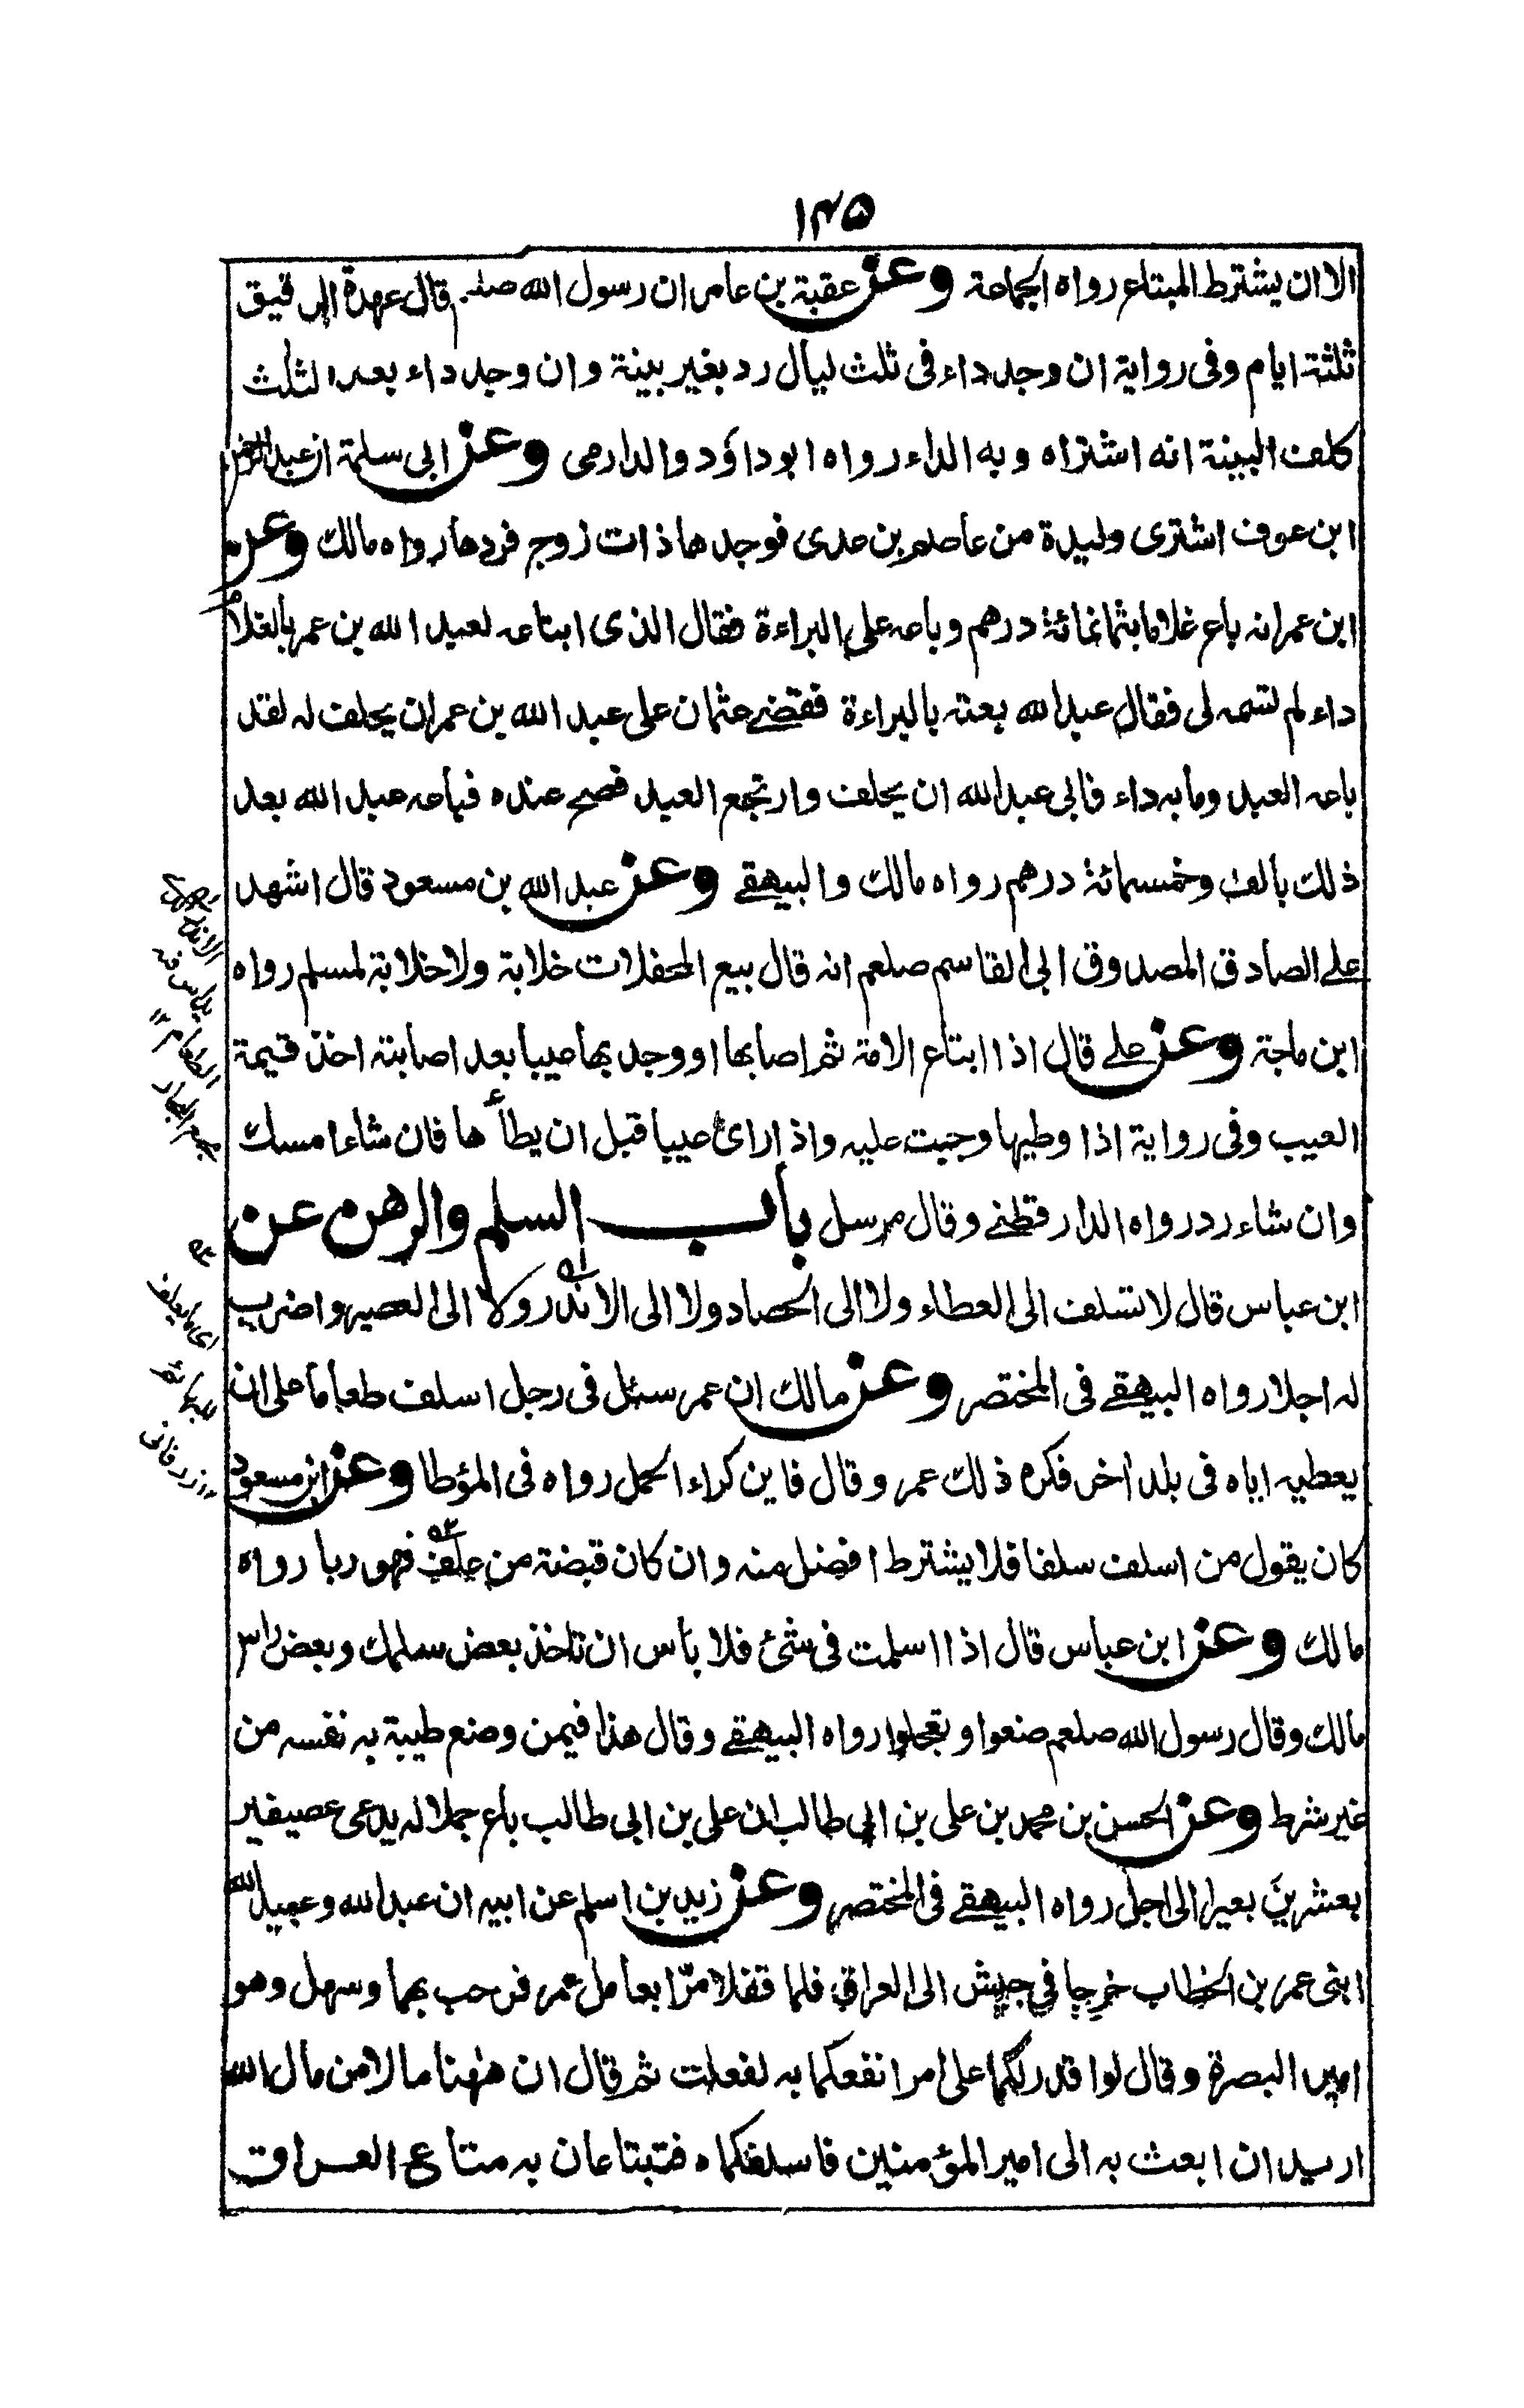 ۱۴۵
الا ان يشترط المبتاع رواه الجماعة وعن عقبة بن عامر ان رسول الله صلعم قال عهدة الرقيق
ثلثة ايام وفى رواية ان وجد داء فى ثلث ليال رد بغير بينة وان وجد داء بعد الثلث
كلف البينة انه اشتراه وبه الداء رواه ابو داؤد والدارمى وعن ابى سلمة ان عبد الرحمن
ابن عوف اشترى وليدة من عاصم بن عدى فوجدها ذات زوج فردها رواه مالك وعن
ابن عمر انه باع غلاما بثمانمائة درهم وباعه على البراءة فقال الذى ابتاعه لعبد الله بن عمر بالغلام
داء لم تسمه لى فقال عبد الله بعته بالبراءة فقضے عثمان على عبد الله بن عمر ان يحلف له لقد
باعه العبد وما به داء فابى عبد الله ان يحلف وارتجع العبد فصح عنده فباعه عبد الله بعد
ذلك بالف وخمسمائة درهم رواه مالك والبيهقے وعن عبد الله بن مسعود قال اشهد
علے الصادق المصدوق ابى القاسم صلعم انه قال بيع المحفلات خلابة ولا خلابة لمسلم رواه
ابن ماجة وعن علے قال اذا ابتاع الامة ثم اصابها او وجد بها عيبا بعد اصابته اخذ قيمة
العيب وفى رواية اذا وطيها وجبت عليه واذا رائ عيبا قبل ان يطأها فان شاء امسك
وان شاء رد رواه الدارقطنے وقال مرسل باب السلم والرهن عن
ابن عباس قال لا تسلف الى العطاء ولا الى الحصاد ولا الى الاندر ولا الى العصير واضرب
له اجلا رواه البيهقے فى المختصر وعن مالك ان عمر سئل فى رجل اسلف طعاما على ان
يعطيه اياه فى بلد اخر فكره ذلك عمر وقال فاين كراء الحمل رواه فى المؤطا وعن ابن مسعود
كان يقول من اسلف سلفا فلا يشترط افضل منه وان كان قبضة من علف فهو ربا رواه
مالك وعن ابن عباس قال اذا اسلمت فى شئ فلا باس ان تاخذ بعض سلمك وبعض راس
مالك وقال رسول الله صلعم ضعوا وتعجلوا رواه البيهقے وقال هذا فيمن وضع طيبة به نفسه من
غير شرط وعن الحسن بن محمد بن على بن ابى طالب ان على بن ابى طالب باع جملا له يدعى عصيفير
بعشرين بعيرا الى اجل رواه البيهقے فى المختصر وعن زيد بن اسلم عن ابيه ان عبد الله وعبيد الله
ابنى عمر بن الخطاب خرجا في جيش الى العراق فلما قفلا مرّا بعامل عمر فرحب بهما وسهل وهو
امير البصرة وقال لو اقدر لكما على امر انفعكما به لفعلت ثم قال ان ههنا مالا من مال الله
اريد ان ابعث به الى امير المؤمنين فاسلفكماه فتبتاعان به متاع العراق